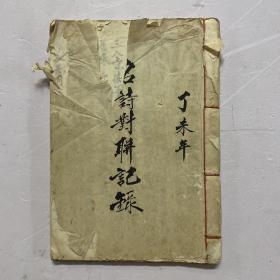 丁未年
名詩對聯記錄